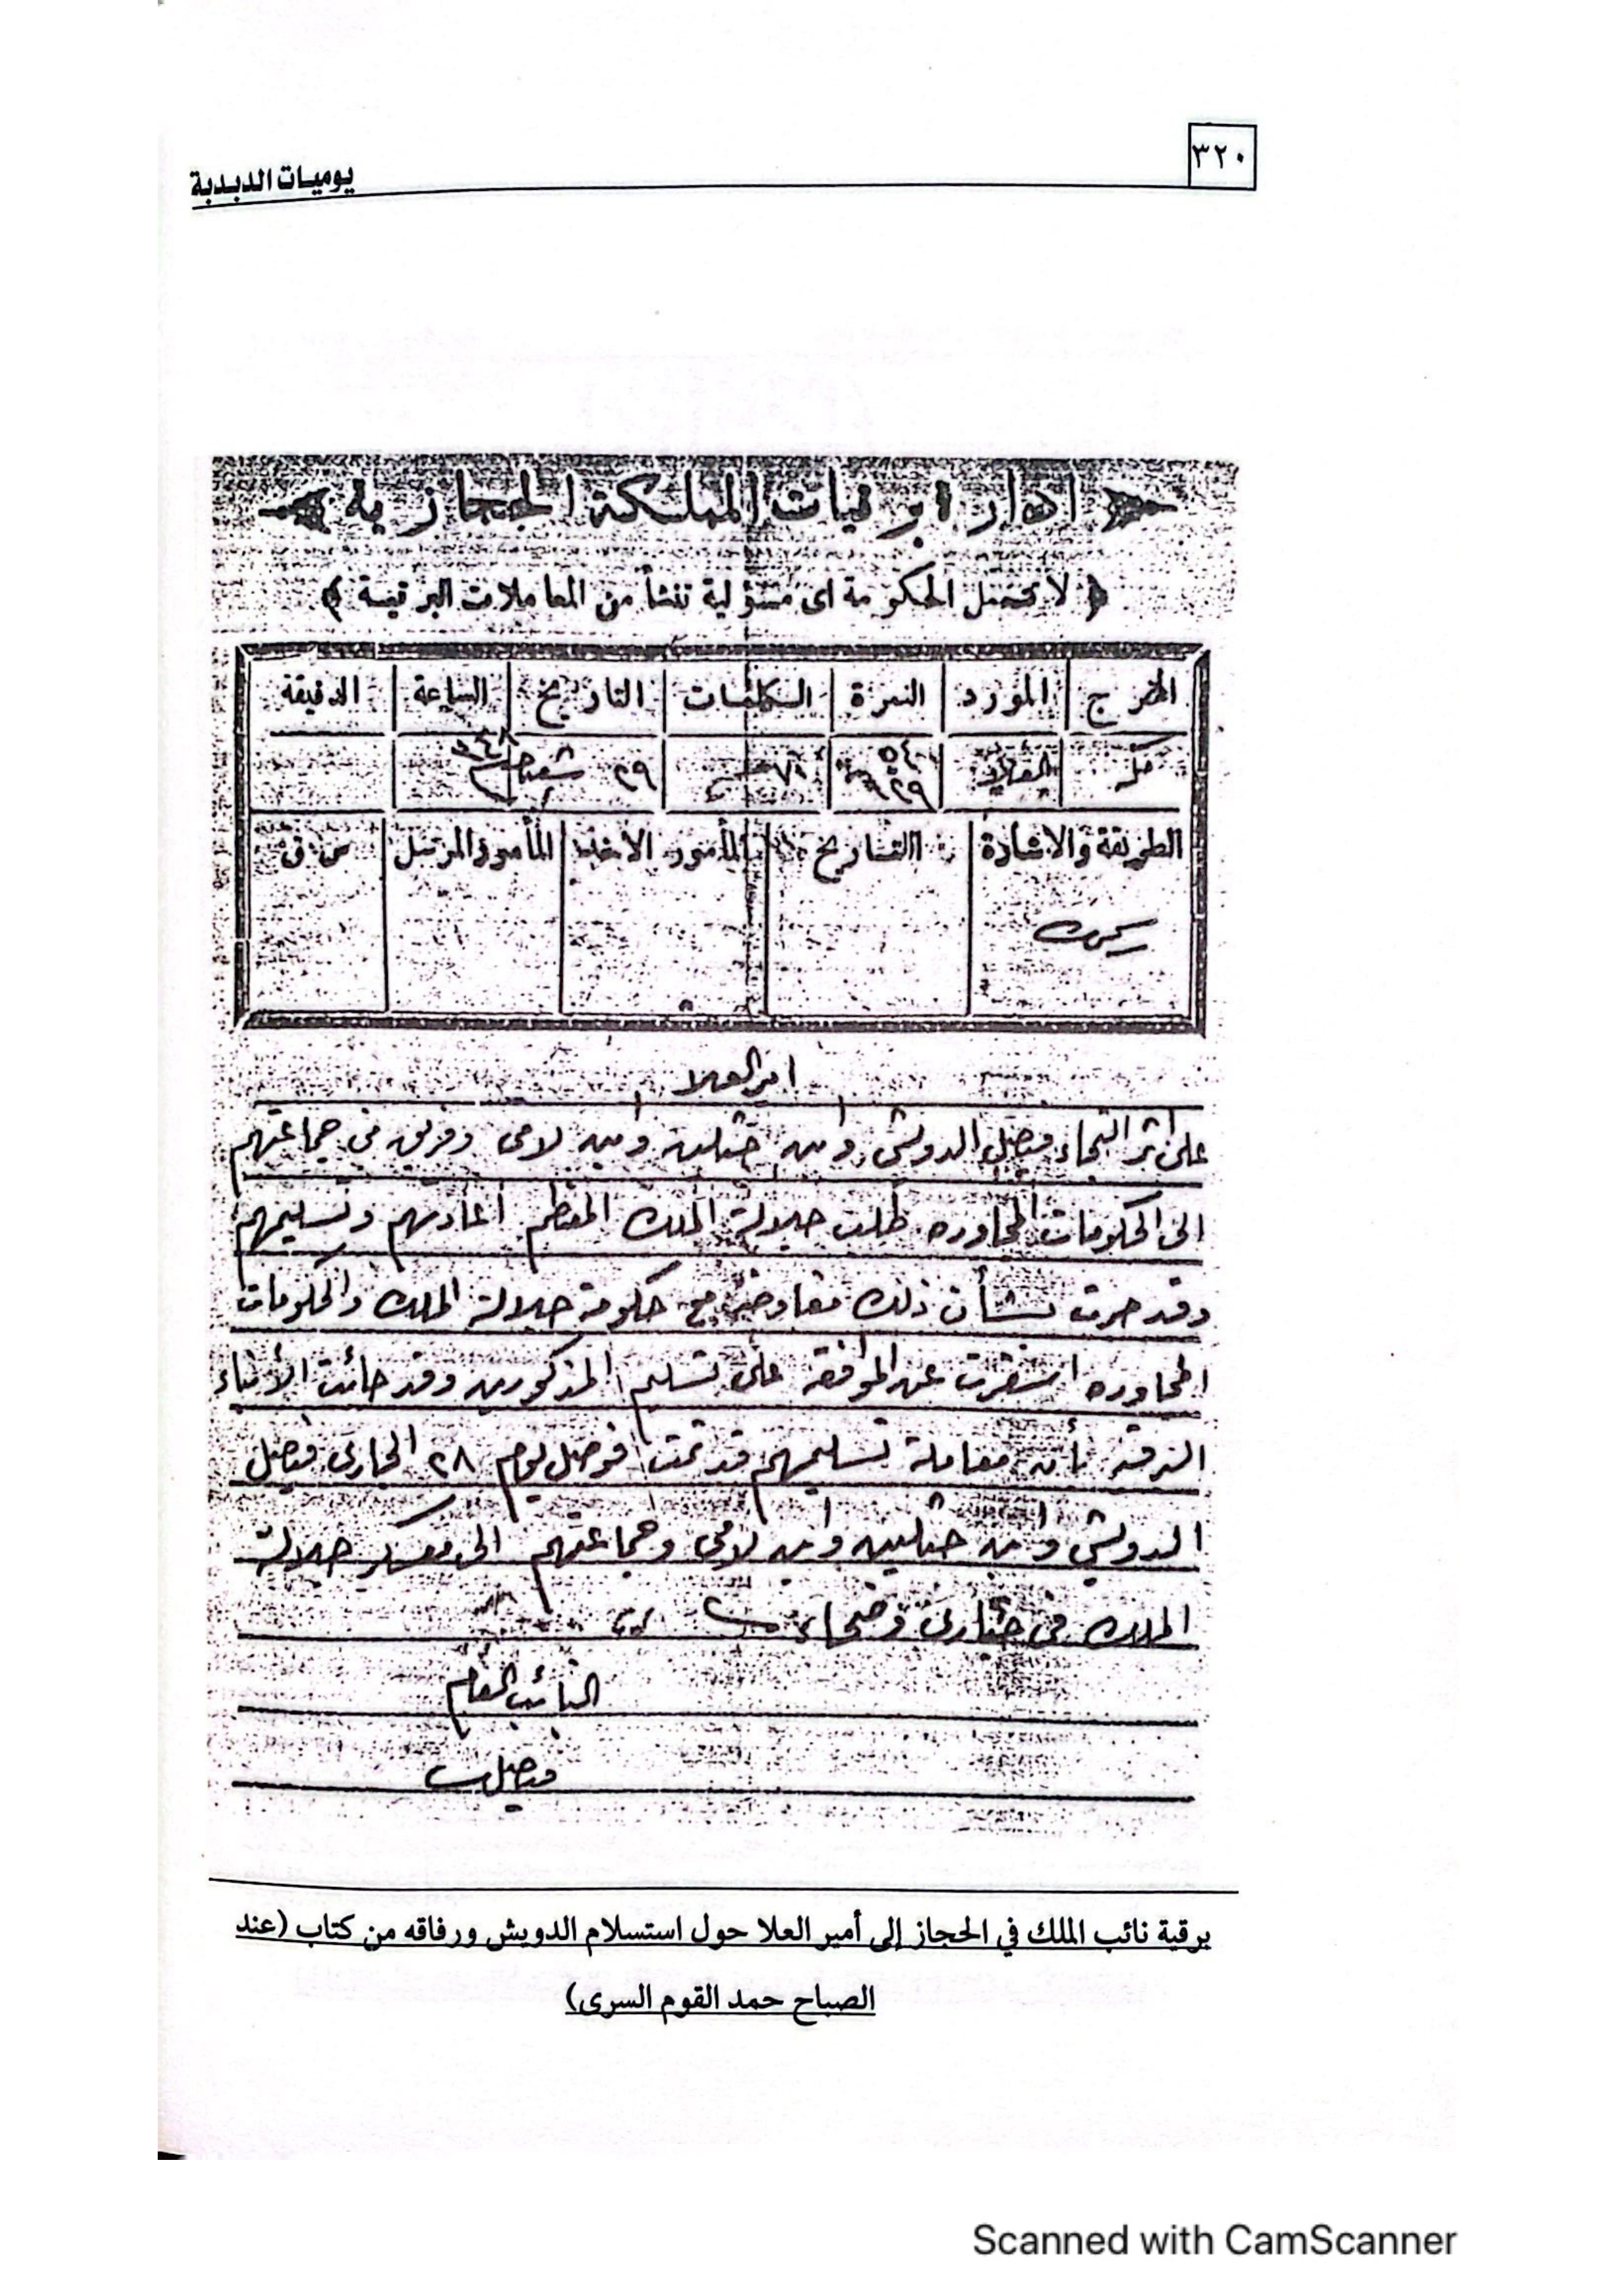 ٣٢٠
يوميات الدبدبة
ادارة برقيات المملكة الحجازية
﴿ لا تتحمل الحكومة اى مسؤلية تنشأ من المعاملات البرقية ﴾
المخرج المورد النمرة الكلمات التاريخ الساعة الدقيقة
مكه العلا ٢٩ شعبان ٣٤٨
الطريقة والاشارة التاريخ المأمور الاخذ المأمور المرسل س ق
امير العلا
على اثر التجاء فيصل الدويش وابن حثلين وابن لامى وفريق من جماعتهم
الى الحكومات المجاوره طلب جلالة الملك المعظم اعادتهم وتسليمهم
وقد جرت بشأن ذلك مفاوضه مع حكومة جلالة الملك والحكومات
المجاوره اسفرت عن الموافقه على تسليم المذكورين وقد جائت الأنباء
البرقيه بأن معاملة تسليمهم قد تمت فوصل يوم ٢٨ الجارى فيصل
الدويش وابن حثلين وابن لامى وجماعتهم الى معسكر جلالة
الملك فى خبارى وضحاء
النائب العام
فيصل
برقية نائب الملك في الحجاز إلى أمير العلا حول استسلام الدويش ورفاقه من كتاب (عند
الصباح حمد القوم السرى)
Scanned with CamScanner